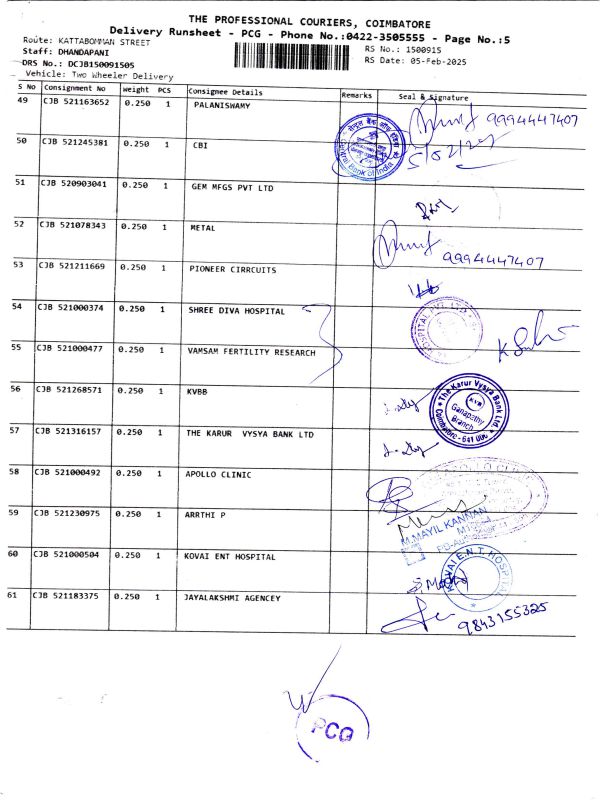 THE PROFESSIONAL COURIERS, COIMBATORE
Delivery Runsheet - PCG - Phone No.:0422-3505555 - Page No.:5
Route: KATTABOMMAN STREET
RS No.: 1500915
Staff: DHANDAPANI
RS Date: 05-Feb-2025
DRS No.: DCJB150091505
Vehicle: Two Wheeler Delivery
S No Consignment No Weight PCS Consignee Details Remarks Seal & Signature
49 CJB 521163652 0.250 1 PALANISWAMY 9994447407
50 CJB 521245381 0.250 1 CBI 5/02/25
सेन्ट्रल बैंक ऑफ इंडिया
Central Bank of India
51 CJB 520903041 0.250 1 GEM MFGS PVT LTD
52 CJB 521078343 0.250 1 METAL 9994447407
53 CJB 521211669 0.250 1 PIONEER CIRRCUITS
54 CJB 521000374 0.250 1 SHREE DIVA HOSPITAL
HOSPITAL PVT. LTD.
55 CJB 521000477 0.250 1 VAMSAM FERTILITY RESEARCH
56 CJB 521268571 0.250 1 KVBB
The Karur Vysya Bank Ltd
KVB
Ganapathy
Branch
Coimbatore - 641 006
57 CJB 521316157 0.250 1 THE KARUR VYSYA BANK LTD
58 CJB 521000492 0.250 1 APOLLO CLINIC
59 CJB 521230975 0.250 1 ARRTHI P
M.MAYIL KANNAN
60 CJB 521000504 0.250 1 KOVAI ENT HOSPITAL
KOVAI E.N.T. HOSPITAL
61 CJB 521183375 0.250 1 JAYALAKSHMI AGENCEY 9843155325
PCG